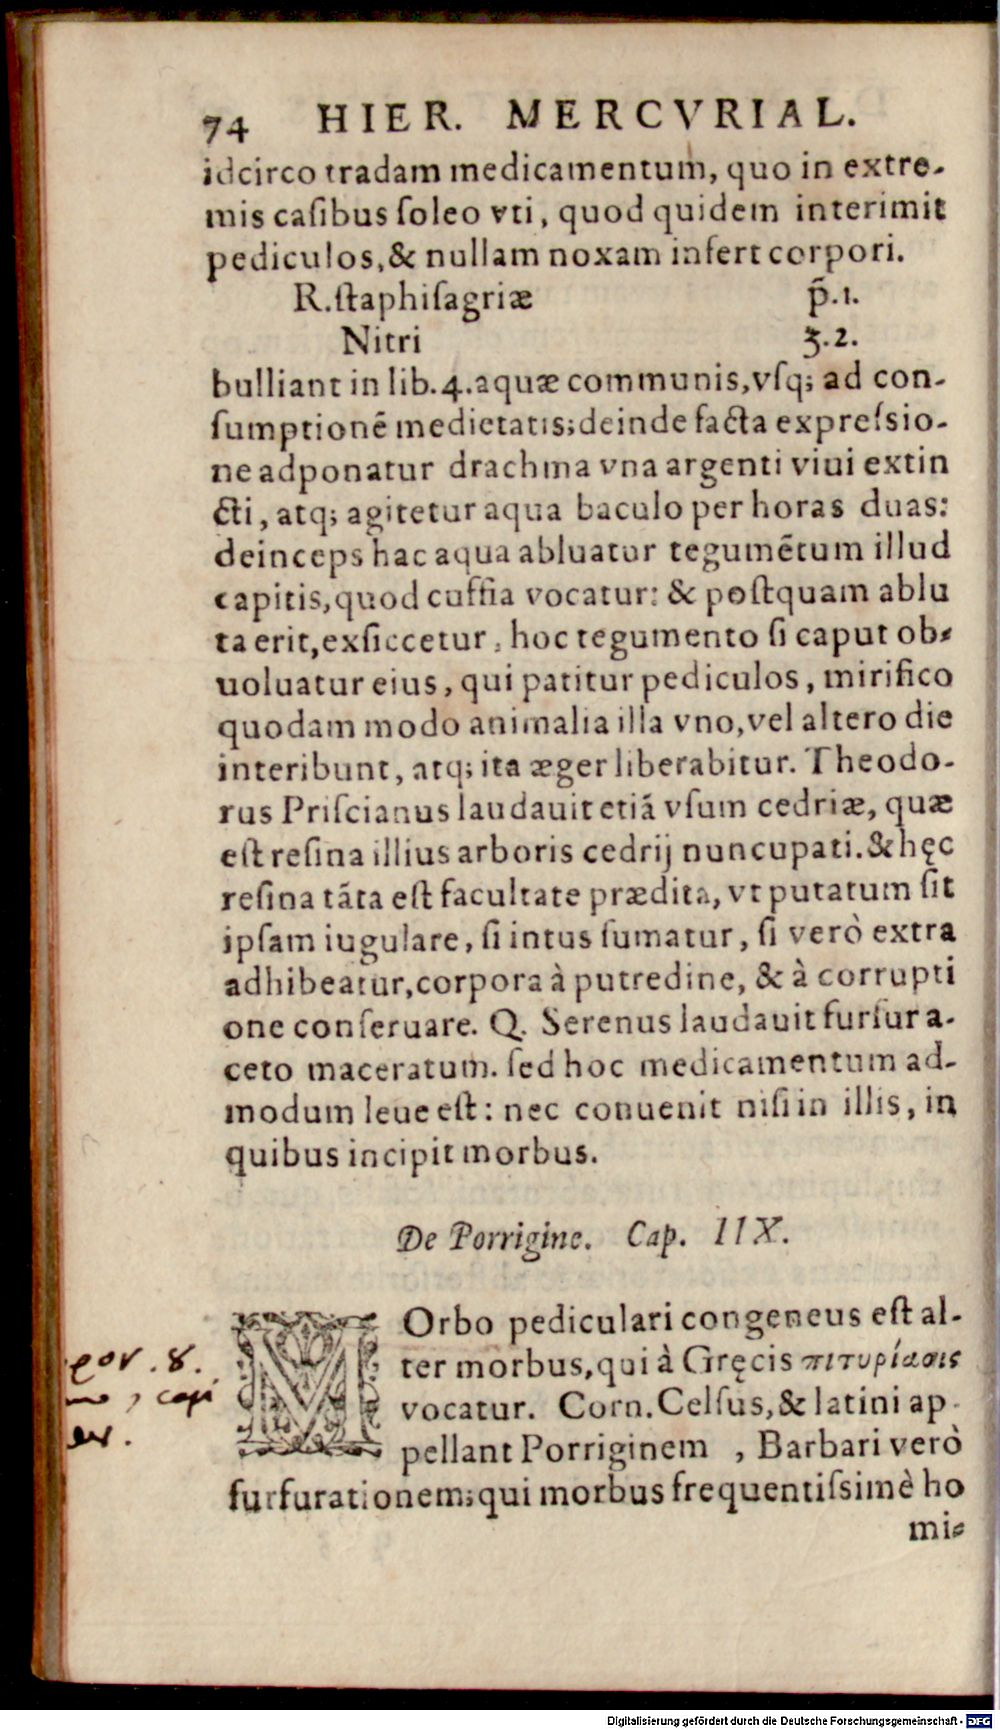 74 HIER. MERCVRIAL.
idcirco tradam medicamentum, quo in extre-
mis caſibus ſoleo vti, quod quidem interimit
pediculos, & nullam noxam infert corpori.
R. ſtaphiſagriæ p̄.1.
Nitri ʒ.2.
bulliant in lib.4. aquæ communis, vſq; ad con-
ſumptionē medietatis; deinde facta expreſsio-
ne adponatur drachma vna argenti viui extin
cti, atq; agitetur aqua baculo per horas duas:
deinceps hac aqua abluatur tegumētum illud
capitis, quod cuffia vocatur: & poſtquam ablu
ta erit, exſiccetur, hoc tegumento ſi caput ob-
uoluatur eius, qui patitur pediculos, mirifico
quodam modo animalia illa vno, vel altero die
interibunt, atq; ita æger liberabitur. Theodo-
rus Priſcianus laudauit etiā vſum cedriæ, quæ
eſt reſina illius arboris cedrij nuncupati. & hęc
reſina tāta eſt facultate prædita, vt putatum ſit
ipſam iugulare, ſi intus ſumatur, ſi verò extra
adhibeatur, corpora à putredine, & à corrupti
one conſeruare. Q. Serenus laudauit furfur a-
ceto maceratum. ſed hoc medicamentum ad-
modum leue eſt: nec conuenit niſi in illis, in
quibus incipit morbus.
De Porrigine. Cap. IIX.
MOrbo pediculari congeneus eſt al-
ter morbus, qui à Gręcis πιτυρίασις
vocatur. Corn. Celſus, & latini ap-
pellant Porriginem , Barbari verò
furfurationem; qui morbus frequentiſsimè ho
mi-
Digitalisierung gefördert durch die Deutsche Forschungsgemeinschaft - DFG